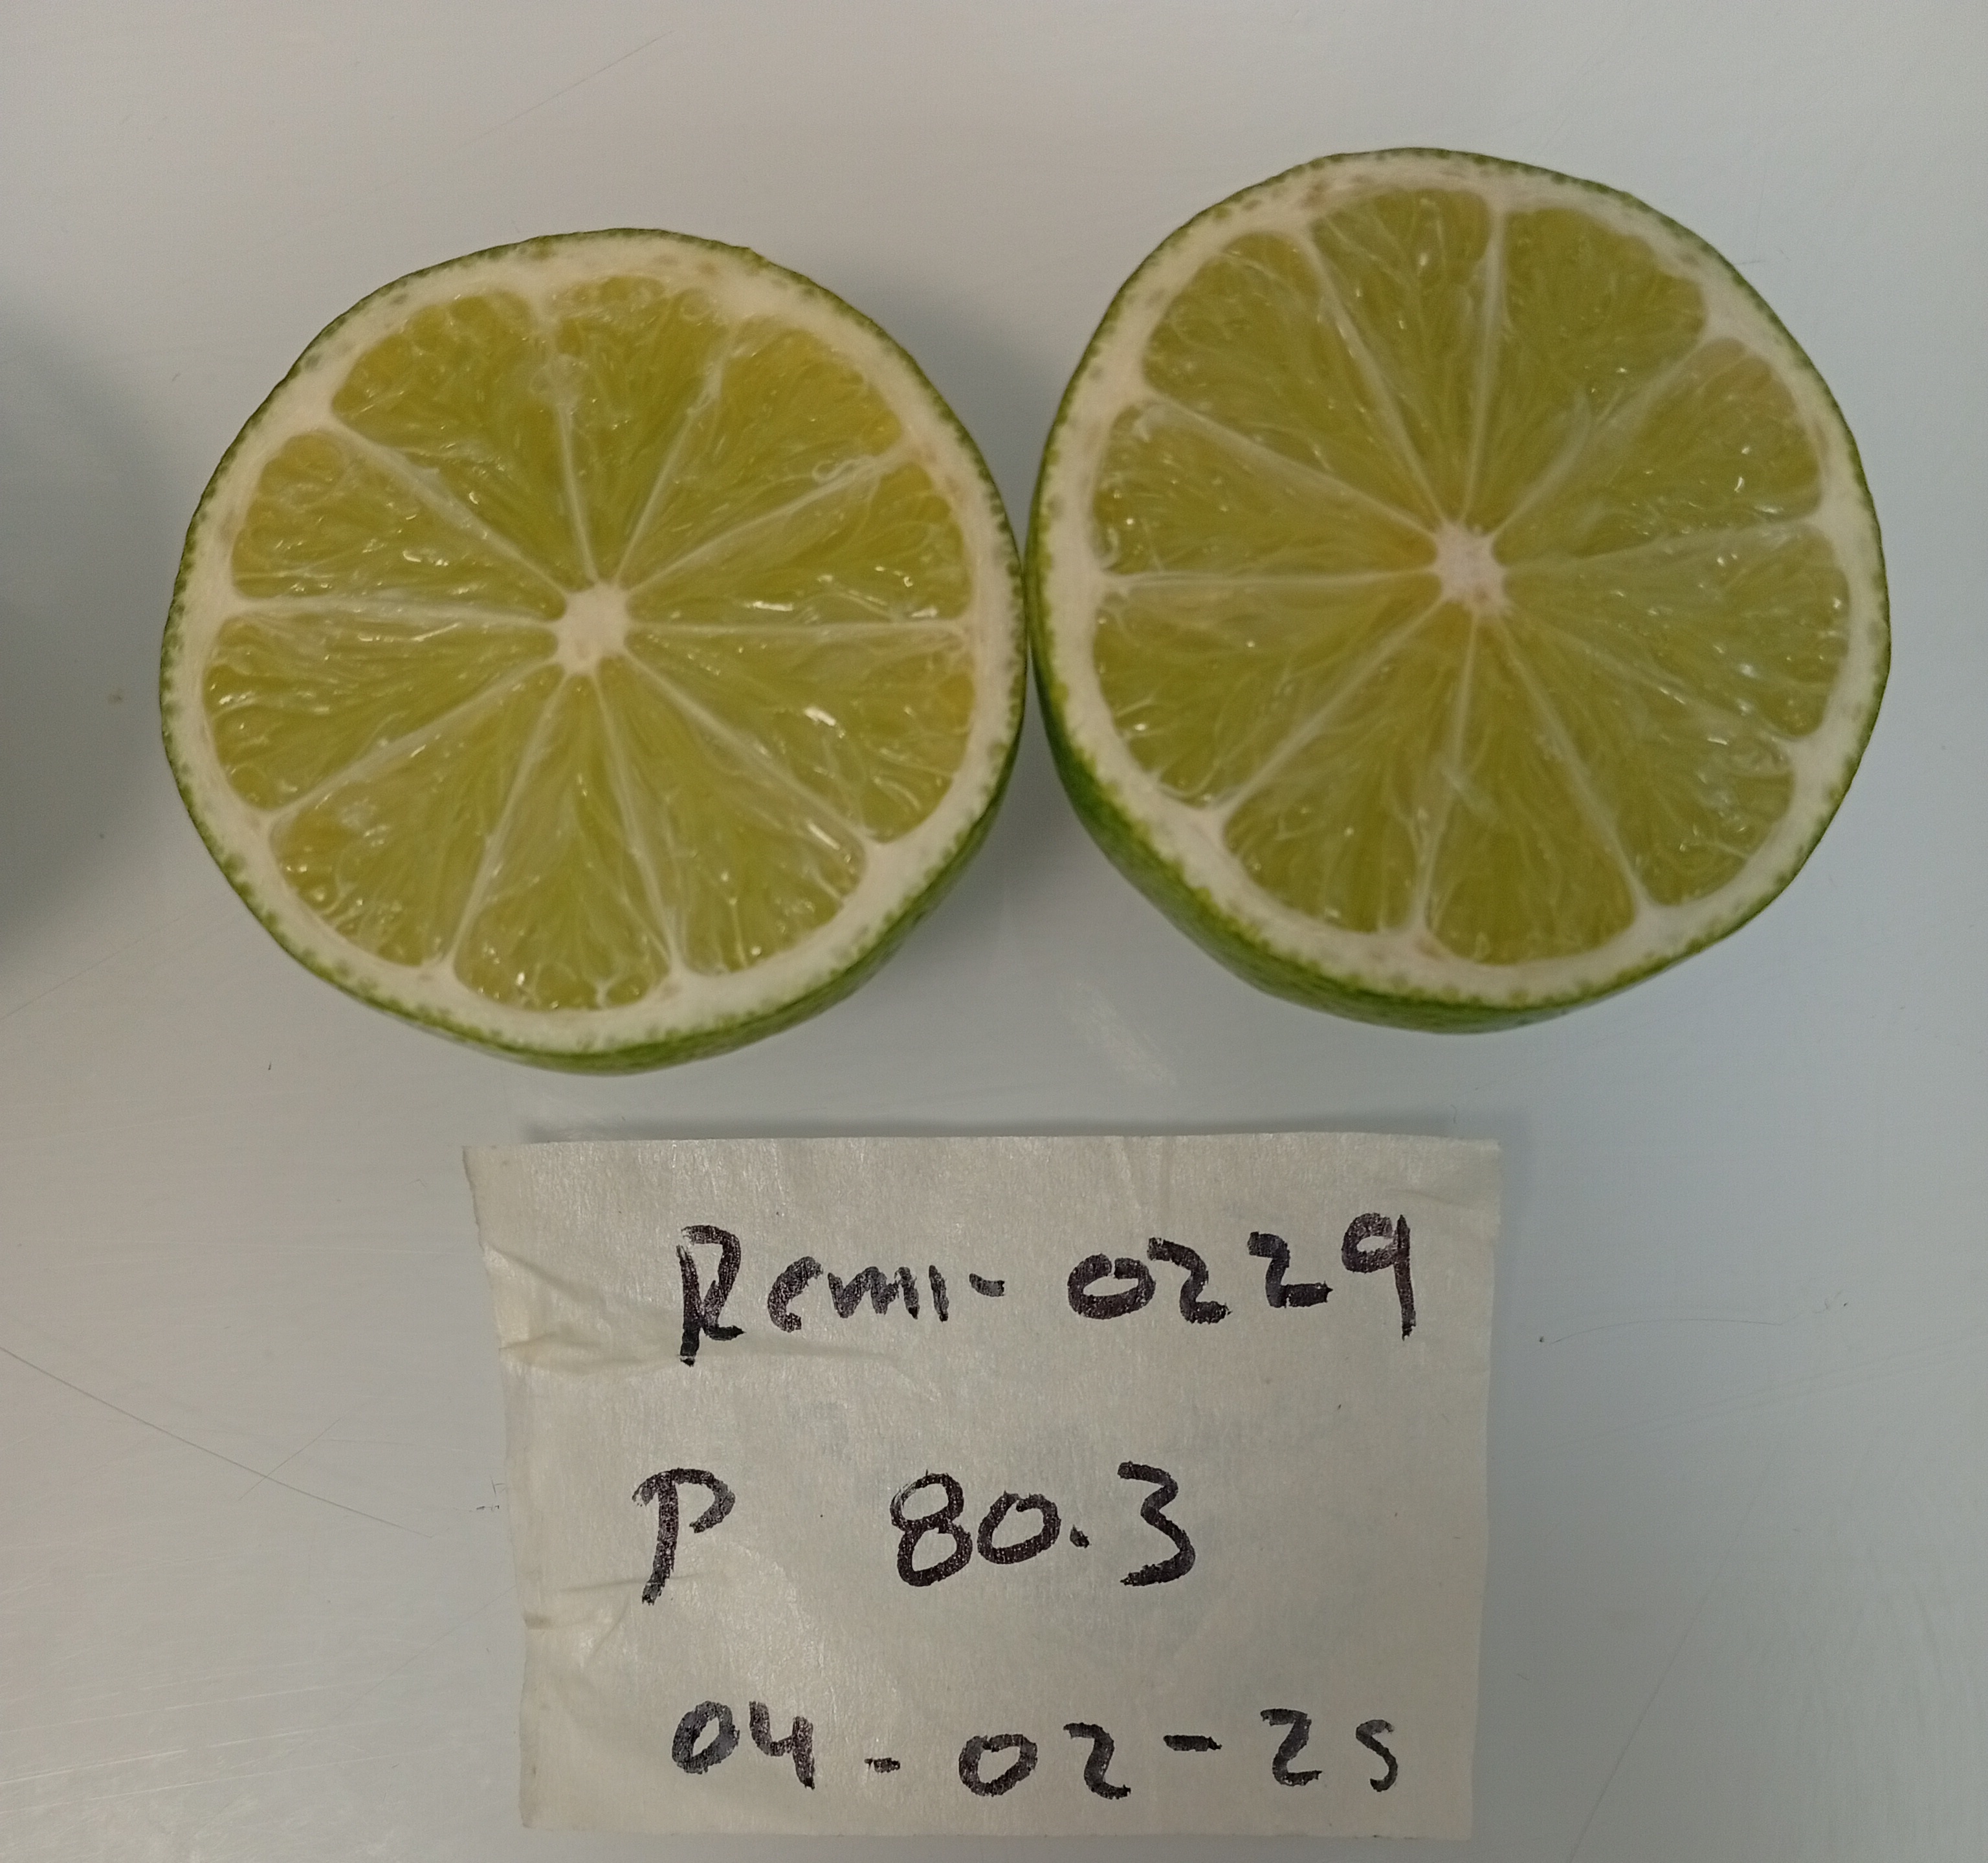 Remi- 0229
P 80.3
04-02-25